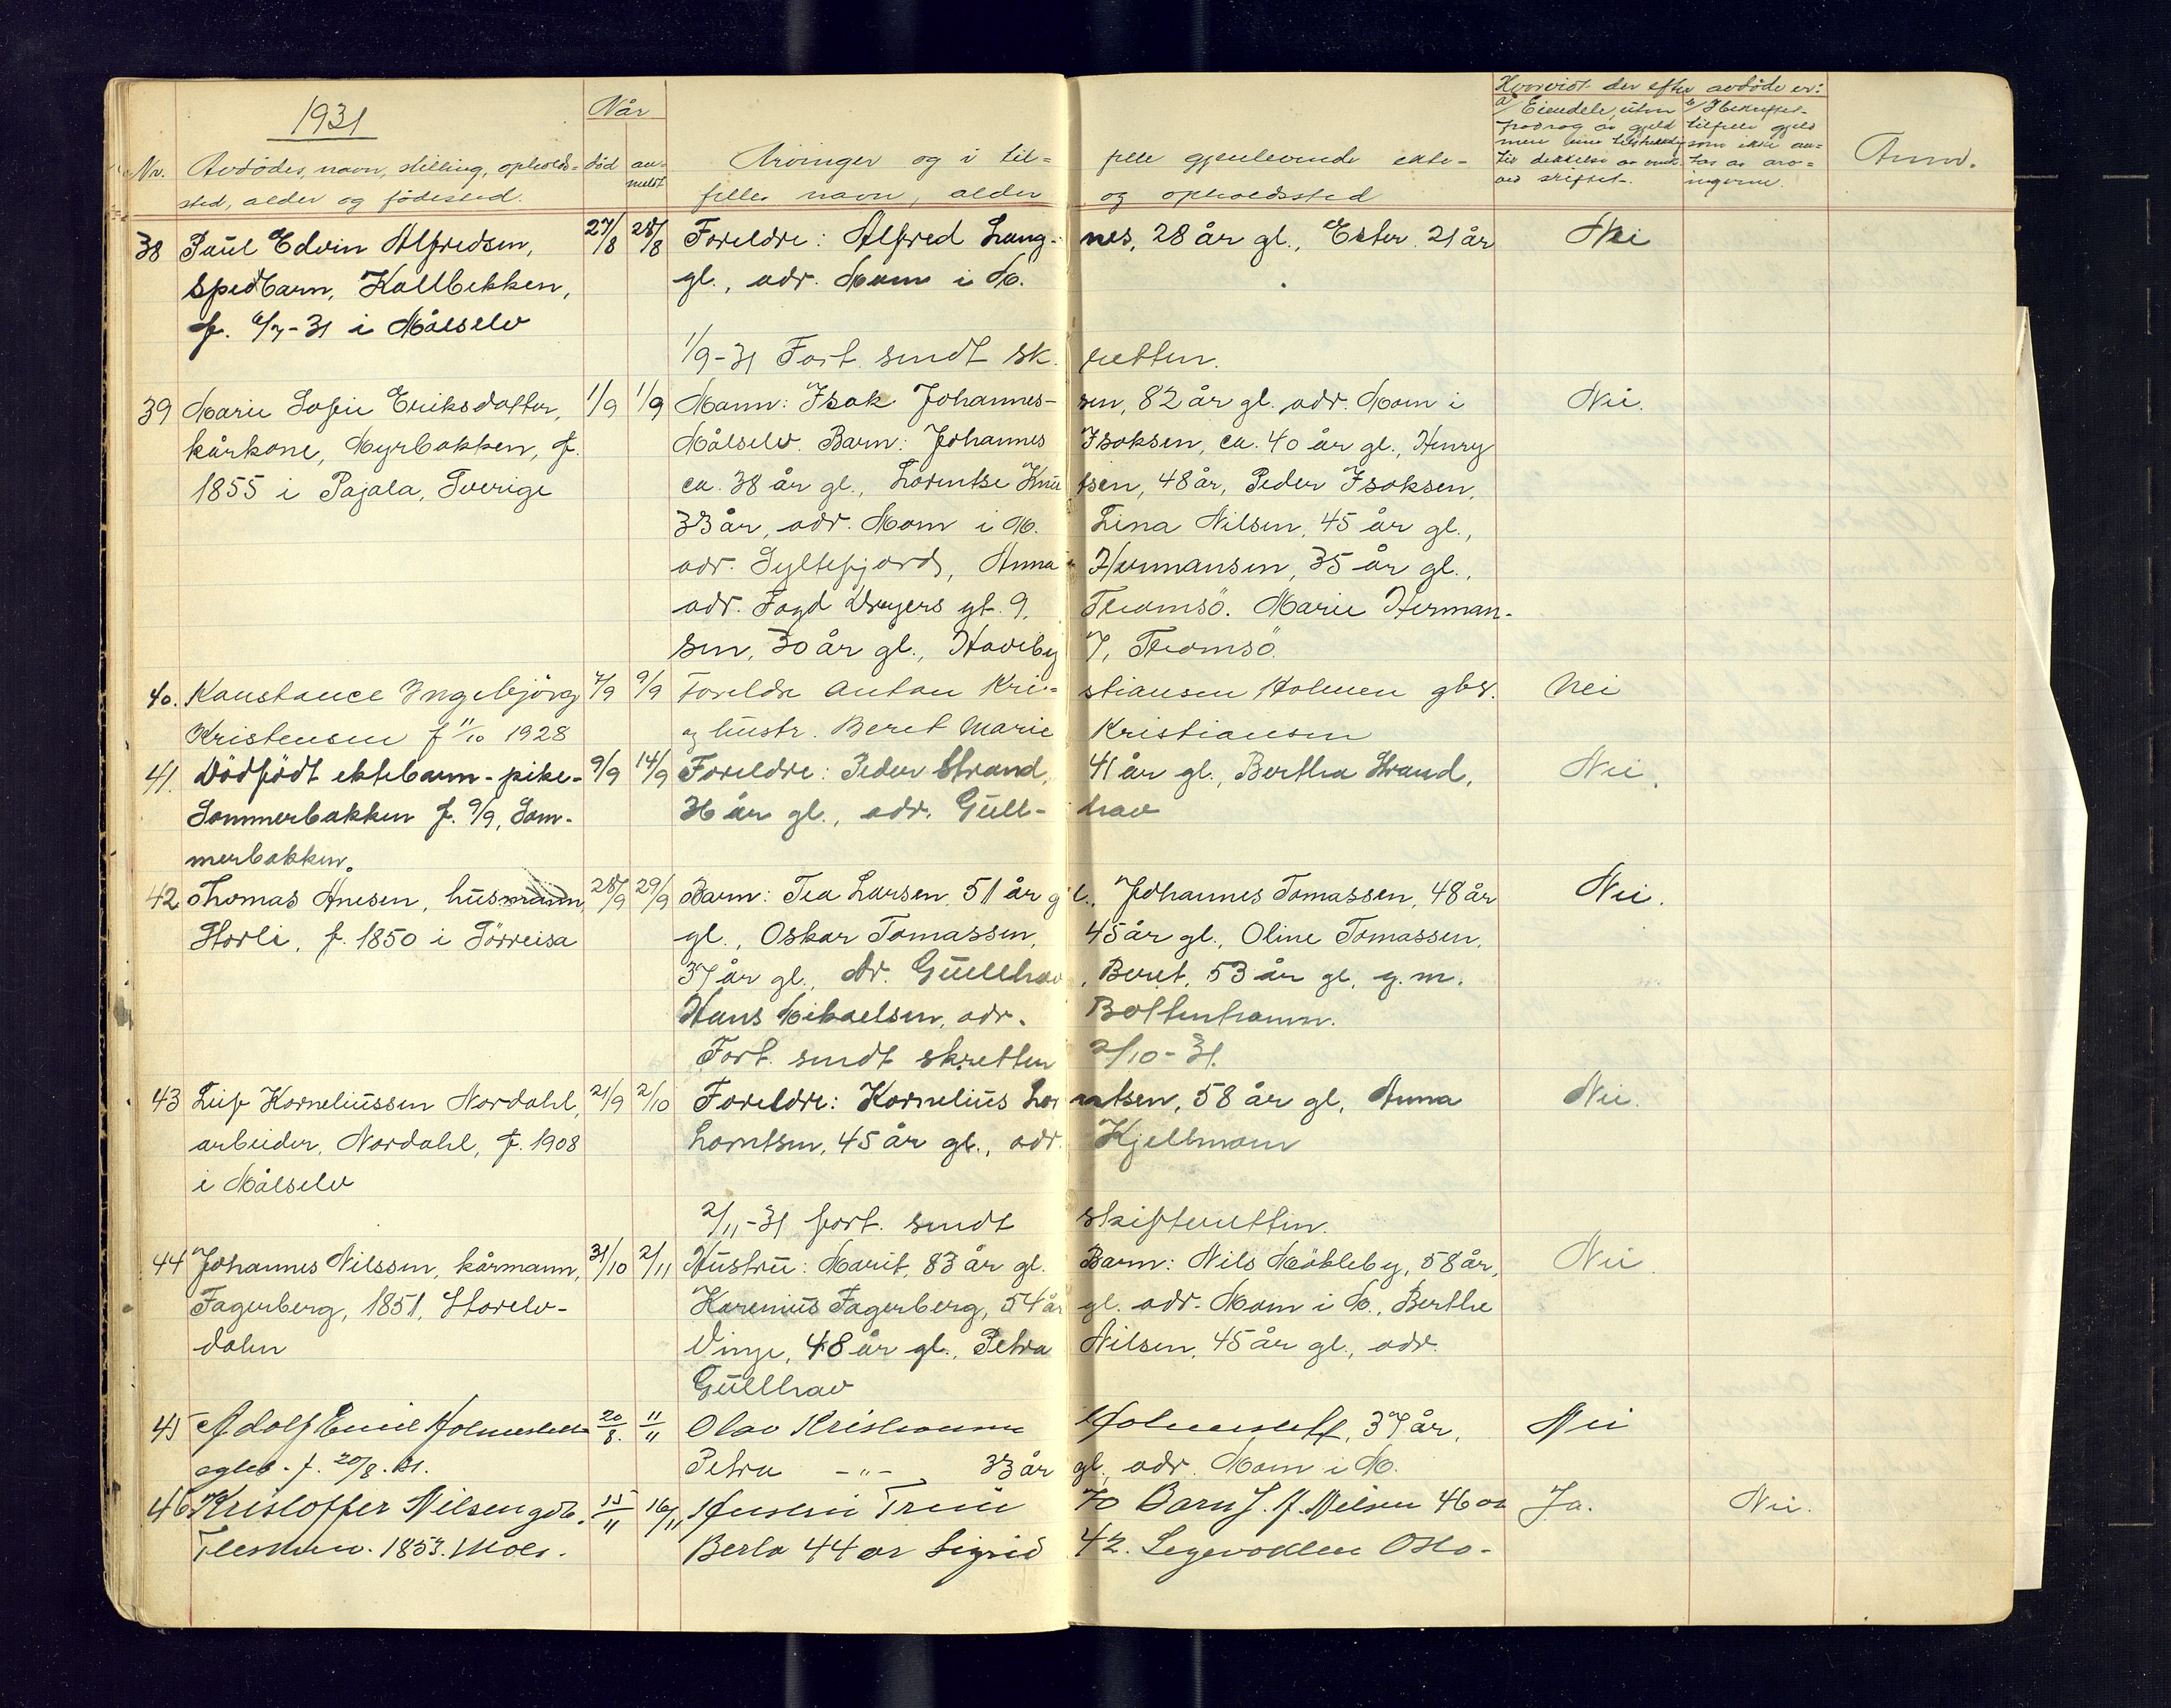 1931
Når
Hvorvidt der efter avdöde er:
Nr. Avdödes, navn, stilling, opholds- död an- Arvinger og i til- felle gjenlevende ekte- a/ Eiendele, uten b/ Anm.
sted, alder og födested. meldt felles navn, alder og opholdssted
fradrag av gjeld tilfelle gjeld
men
til dekkelse av omk. tas av arv-
ved skiftet. ingerne.
38 Paul Edvin Alfredsen, 27/8 28/8 Foreldre: Alfred Lang- nes, 28 år gl., Ester 21 år Nei
spedbarn, Kallbekken, gl., adr. Mom i M.
f. 6/7-31 i Målselv
1/9-31 Fort. sendt sk. retten.
39 Marie Sofie Eriksdatter, 1/9 1/9 Mann: Isak Johannes- sen, 82 år gl. adr. Mom i Nei.
kårkone, Myrbakken, f. Målselv. Barn: Johannes Isaksen, ca. 40 år gl., Henry
1855 i Pajala, Sverige ca. 38 år gl., Lorentse Knu tsen, 48 år, Peder Isaksen,
33 år, adr. Mom i M. Lina Nilsen, 45 år gl.,
adr. Syltefjord, Anna Hermansen, 35 år gl.,
adr. Fogd Dreyers gt. 9, Tromsö. Marie Herman-
sen, 30 år gl., Haveby 7, Tromsö
40. Konstance Ingebjörg 7/9 9/9 Foreldre Anton Kri- stiansen Holmen gbr. Nei
Kristensen f 11/10 1928 og hustr. Beret Marie Kristiansen
41. Dödfödt ektebarn - pike - 9/9 14/9 Foreldre: Peder Strand, 41 år gl., Bertha Strand, Nei.
Sommerbakken f. 9/9, Som- 36 år gl., adr. Gull- hav
merbakken.
42 Thomas Ånesen, husmann, 28/9 29/9 Barn: Tea Larsen, 51 år g l., Johannes Tomassen, 48 år Nei.
Storli, f. 1850 i Sörreisa gl., Oskar Tomassen, 45 år gl., Oline Tomassen,
37 år gl., Ar. Gullhav, Beret, 53 år gl, g.m.
Hans Mikaelsen, adr. Bottenhavn.
Fort. sendt skretten 2/10-31.
43 Leif Korneliussen Nordahl, 21/9 2/10 Foreldre: Kornelius Lor entsen, 58 år gl, Anna Nei.
arbeider, Nordahl, f. 1908 Lorntsen, 45 år gl., adr. Kjellmoen
i Målselv
2/11-31 fort. sendt skifteretten.
44 Johannes Nilssen, kårmann, 31/10 2/11 Hustru: Marit, 83 år gl. Barn: Nils Mökleby, 58 år, Nei.
Fagerberg, 1851, Storelv- Karenius Fagerberg, 54 år gl. adr. Mom i M., Berthe
dalen Vinje, 48 år gl., Petra Nilsen, 45 år gl., adr.
Gullhav
45 Adolf Emil Holmeslett 20/8. 11/11 Olav Kristiansen Holmeslett, 37 år, Nei
f. 20/8. 31. Petra -"- 33 år gl., adr. Mom i M.
46 Kristoffer Nilsen gdb. 15/11 16/11 Hustru Trine 70 Barn J. N. Nilsen 46 år Ja. Nei.
1853. Mols. Berta 44 år Sigrid 42. Oslo.